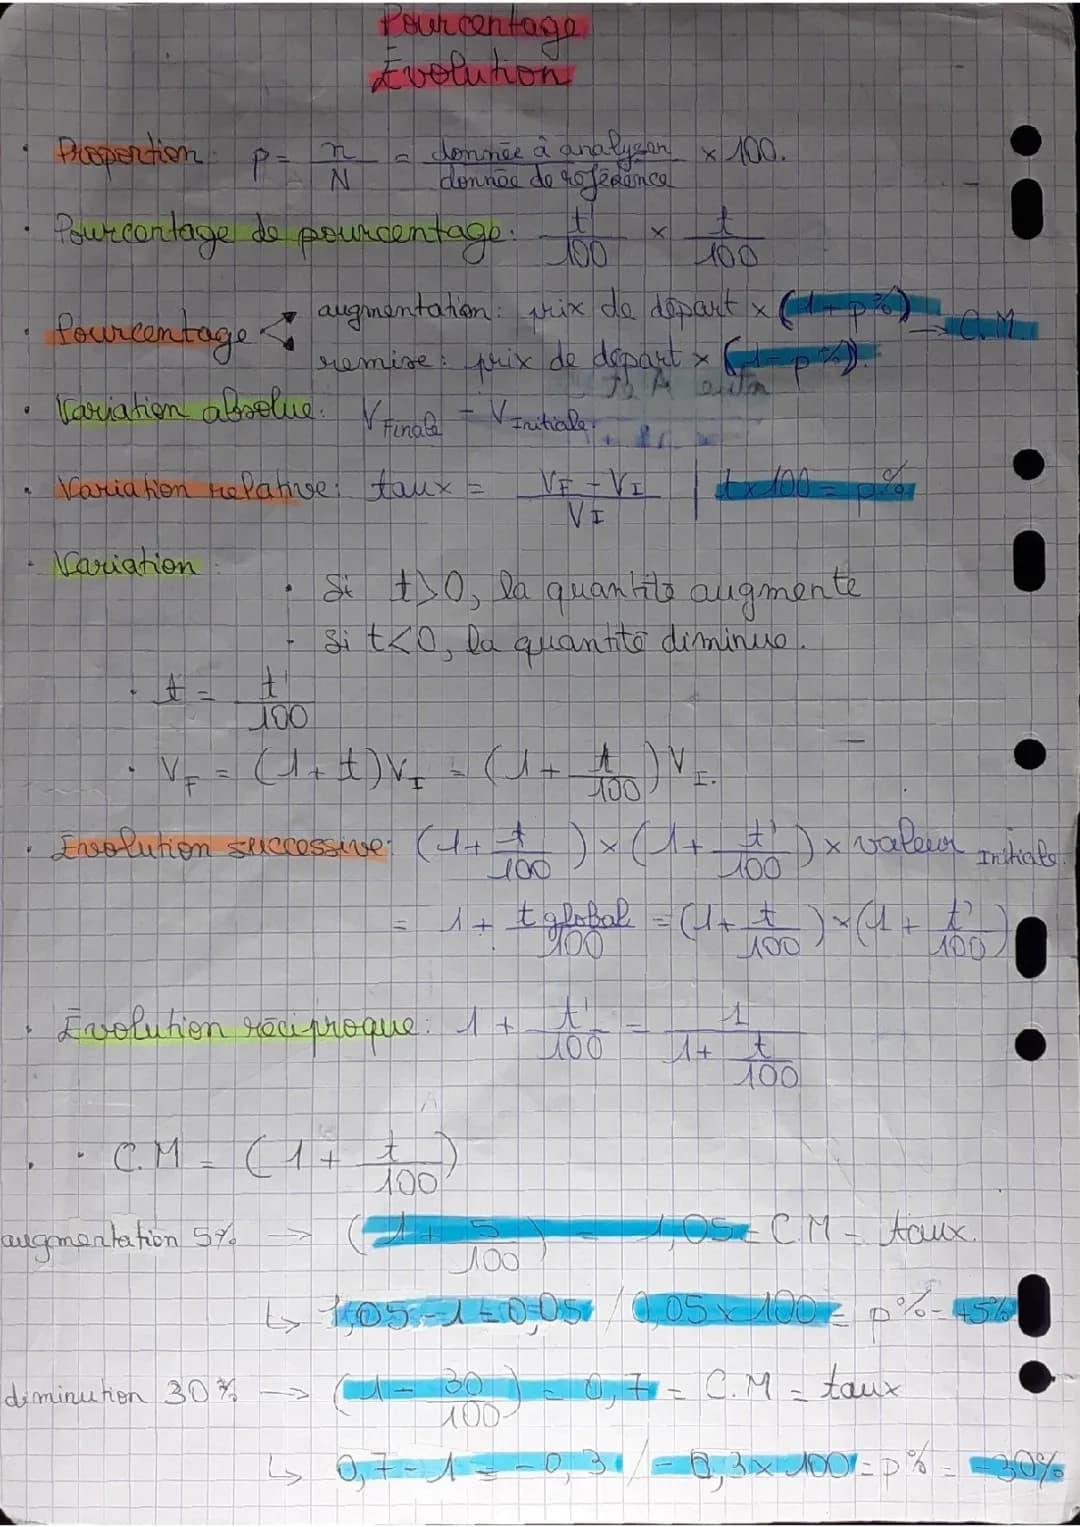 Pourcentage
Évolution
• Proportion: p = n/N = donnée à analyser/donnée de référence × 100.
• Pourcentage de pourcentage: t/100 × t/100
• Pourcentage
augmentation: prix de départ × (1 + p%) → C.M
remise: prix de départ × (1 - p%).
• Variation absolue: V Finale - V Initiale.
• Variation relative: taux = VF - VI/VI | t×100 = p%
• Variation:
• Si t>0, la quantité augmente
- Si t<0, la quantité diminue.
• t = t'/100
• VF = (1 + t)VI = (1 + t/100)VI.
• Evolution successive: (1 + t/100) × (1 + t'/100) × valeur Initiale.
= 1 + t global/100 = (1 + t/100) × (1 + t'/100)
• Évolution réciproque: 1 + t'/100 = 1/1 + t/100
• • C.M = (1 + t/100)
augmentation 5% → (1 + 5/100) = 1,05 = C.M = taux.
↳ 1,05 - 1 = 0,05 / 0,05 × 100 = p% = +5%
diminution 30% → (1 - 30/100) = 0,7 = C.M = taux
↳ 0,7 - 1 = -0,3 / -0,3 × 100 = p% = -30%